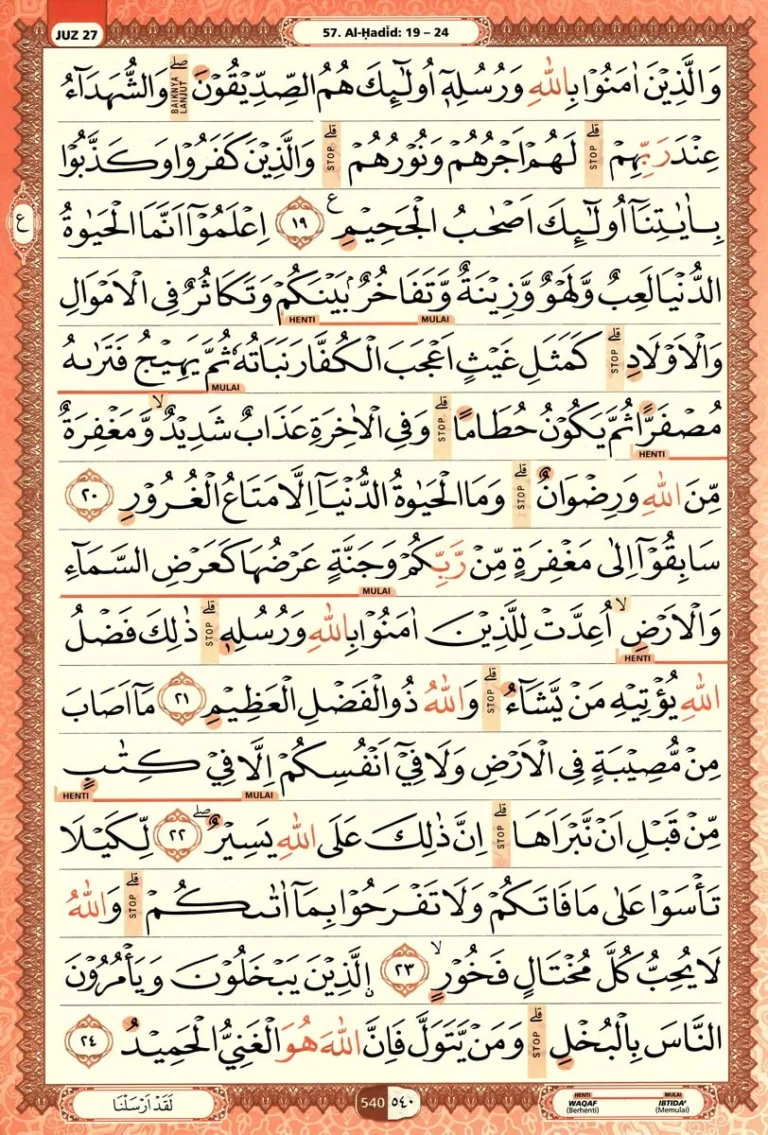 JUZ 27
57. Al-Ḥadīd: 19 – 24
وَالَّذِيْنَ اٰمَنُوْا بِاللّٰهِ وَرُسُلِهٖٓ اُولٰۤىِٕكَ هُمُ الصِّدِّيْقُوْنَ ۖ BAIKNYA LANJUT وَالشُّهَدَاۤءُ
عِنْدَ رَبِّهِمْ ۗ STOP لَهُمْ اَجْرُهُمْ وَنُوْرُهُمْ ۗ STOP وَالَّذِيْنَ كَفَرُوْا وَكَذَّبُوْا
ع
بِاٰيٰتِنَآ اُولٰۤىِٕكَ اَصْحٰبُ الْجَحِيْمِ ࣖ ١٩ اِعْلَمُوْٓا اَنَّمَا الْحَيٰوةُ
الدُّنْيَا لَعِبٌ وَّلَهْوٌ وَّزِيْنَةٌ وَّتَفَاخُرٌۢ بَيْنَكُمْ وَتَكَاثُرٌ فِى الْاَمْوَالِ
HENTI MULAI
وَالْاَوْلَادِ ۗ STOP كَمَثَلِ غَيْثٍ اَعْجَبَ الْكُفَّارَ نَبَاتُهٗ ثُمَّ يَهِيْجُ فَتَرٰىهُ
MULAI
مُصْفَرًّا ثُمَّ يَكُوْنُ حُطَامًا ۗ STOP وَفِى الْاٰخِرَةِ عَذَابٌ شَدِيْدٌ ۙ وَّمَغْفِرَةٌ
HENTI
مِّنَ اللّٰهِ وَرِضْوَانٌ ۗ STOP وَمَا الْحَيٰوةُ الدُّنْيَآ اِلَّا مَتَاعُ الْغُرُوْرِ ٢٠
سَابِقُوْٓا اِلٰى مَغْفِرَةٍ مِّنْ رَّبِّكُمْ وَجَنَّةٍ عَرْضُهَا كَعَرْضِ السَّمَاۤءِ
MULAI
وَالْاَرْضِ ۙ اُعِدَّتْ لِلَّذِيْنَ اٰمَنُوْا بِاللّٰهِ وَرُسُلِهٖ ۗ STOP ذٰلِكَ فَضْلُ
HENTI
اللّٰهِ يُؤْتِيْهِ مَنْ يَّشَاۤءُ ۗ STOP وَاللّٰهُ ذُو الْفَضْلِ الْعَظِيْمِ ٢١ مَآ اَصَابَ
مِنْ مُّصِيْبَةٍ فِى الْاَرْضِ وَلَا فِيْٓ اَنْفُسِكُمْ اِلَّا فِيْ كِتٰبٍ
HENTI MULAI
مِّنْ قَبْلِ اَنْ نَّبْرَاَهَا ۗ STOP اِنَّ ذٰلِكَ عَلَى اللّٰهِ يَسِيْرٌ ۖ ٢٢ لِّكَيْلَا
تَأْسَوْا عَلٰى مَا فَاتَكُمْ وَلَا تَفْرَحُوْا بِمَآ اٰتٰىكُمْ ۗ STOP وَاللّٰهُ
لَا يُحِبُّ كُلَّ مُخْتَالٍ فَخُوْرٍ ۙ ٢٣ ۨالَّذِيْنَ يَبْخَلُوْنَ وَيَأْمُرُوْنَ
النَّاسَ بِالْبُخْلِ ۗ STOP وَمَنْ يَّتَوَلَّ فَاِنَّ اللّٰهَ هُوَ الْغَنِيُّ الْحَمِيْدُ ٢٤
لَقَدْ اَرْسَلْنَا
540 ٥٤٠
HENTI MULAI
WAQAF IBTIDA'
(Berhenti) (Memulai)